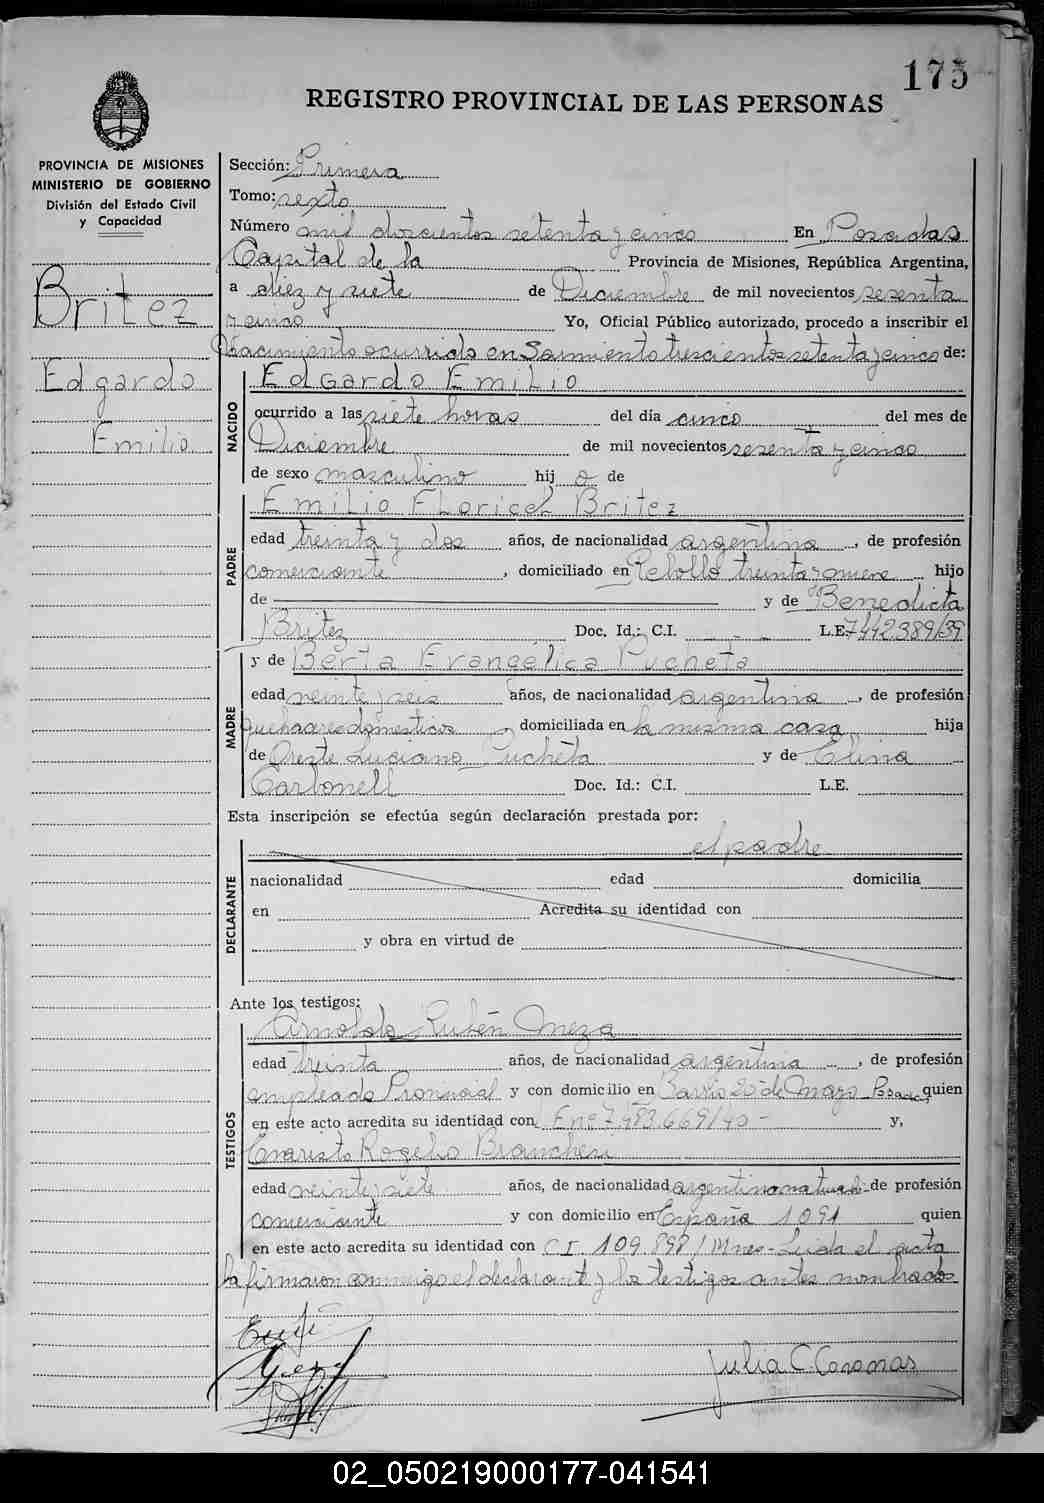 175
REGISTRO PROVINCIAL DE LAS PERSONAS
PROVINCIA DE MISIONES
MINISTERIO DE GOBIERNO
División del Estado Civil
y Capacidad
Britez
Edgardo
Emilio
Sección: Primera
Tomo: sexto
Número mil doscientos setenta y cinco En Posadas
Capital de la Provincia de Misiones, República Argentina,
a diez y siete de Diciembre de mil novecientos sesenta
y cinco Yo, Oficial Público autorizado, procedo a inscribir el
Nacimiento ocurrido en Sarmiento trescientos setenta y cinco de:
NACIDO
Edgardo Emilio
ocurrido a las siete horas del día cinco del mes de
Diciembre de mil novecientos sesenta y cinco
de sexo masculino hij o de
PADRE
Emilio Floricel Britez
edad treinta y dos años, de nacionalidad argentina, de profesión
comerciante, domiciliado en Rebollo treinta y hijo
de y de Benedicta
Britez Doc. Id.: C.I. - - - L.E. 7442389/39
MADRE
y de Berta Evangélica Pucheta
edad veinte y seis años, de nacionalidad argentina, de profesión
quehaceres domésticos, domiciliada en la misma casa hija
de Oreste Luciano Pucheta y de Elina
Carbonell Doc. Id.: C.I. L.E.
Esta inscripción se efectúa según declaración prestada por:
DECLARANTE
el padre
nacionalidad edad domicilia
en Acredita su identidad con
y obra en virtud de
Ante los testigos:
TESTIGOS
Arnoldo Rubén Meza
edad treinta años, de nacionalidad argentina, de profesión
empleado Provincial y con domicilio en Barrio 20 de Mayo quien
en este acto acredita su identidad con En° 7.483.669/40 - y,
Evaristo Rogelio
edad veinte y siete años, de nacionalidad argentino de profesión
comerciante y con domicilio en España 1091 quien
en este acto acredita su identidad con C I. 109.898/Mnes- Leida el acta
la firmaron conmigo el declarante y los testigos antes nombrados
Julia C.
02_050219000177-041541